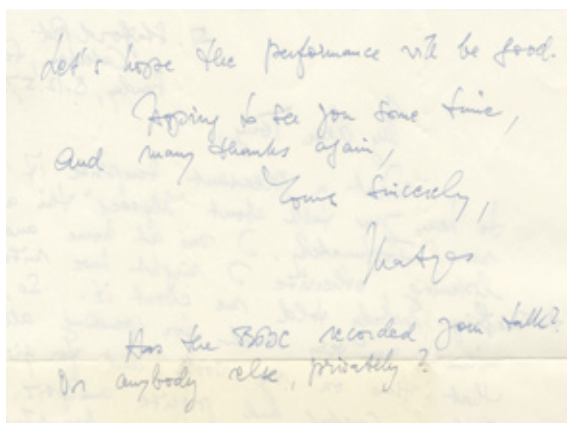 Let's hope the performance will be good.
Hoping to see you some time,
and many thanks again,
Yours sincerely,
Has the BBC recorded your talk?
Or anybody else, privately?